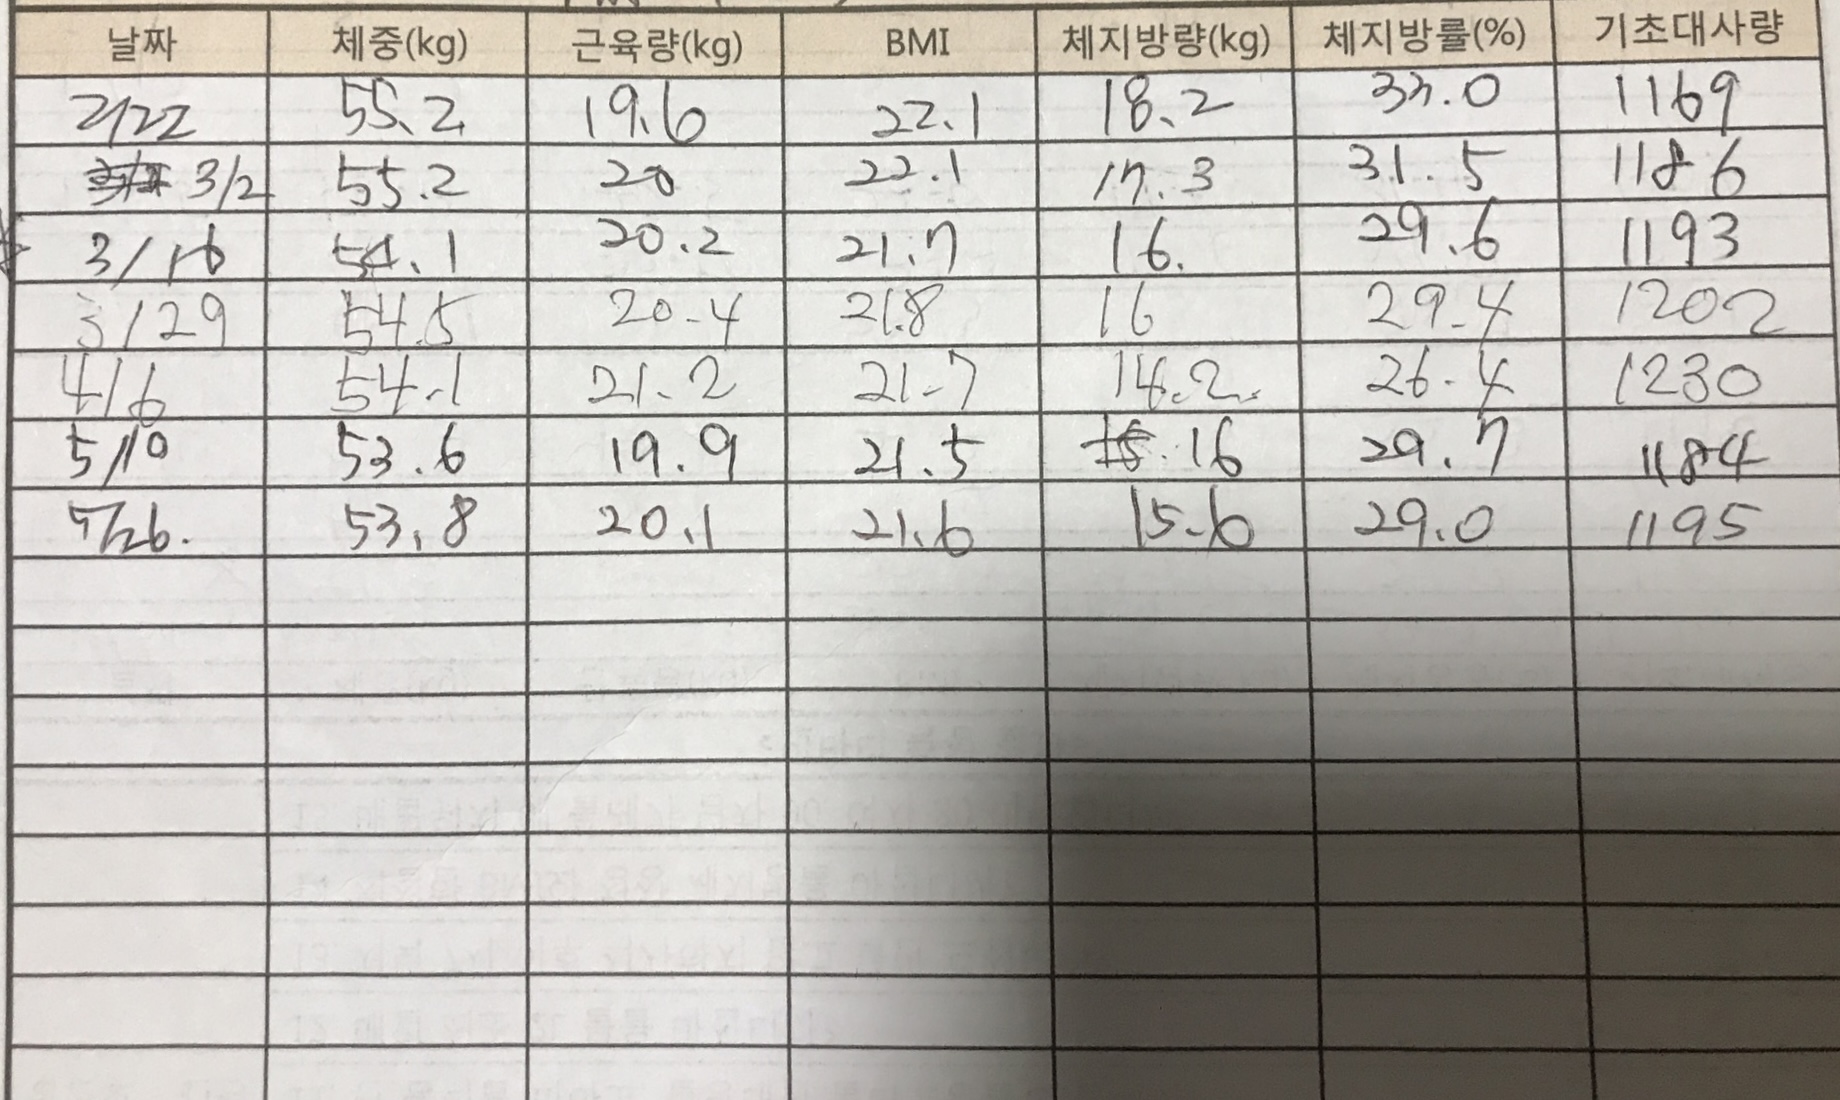 날짜 체중(kg) 근육량(kg) BMI 체지방량(kg) 체지방률(%) 기초대사량
2/22 55.2 19.6 22.1 18.2 33.0 1169
3/2 55.2 20 22.1 17.3 31.5 1186
3/16 54.1 20.2 21.7 16. 29.6 1193
3/29 54.5 20.4 21.8 16 29.4 1202
4/6 54.1 21.2 21.7 14.2. 26.4 1230
5/10 53.6 19.9 21.5 16 29.7 1184
5/26. 53.8 20.1 21.6 15.6 29.0 1195